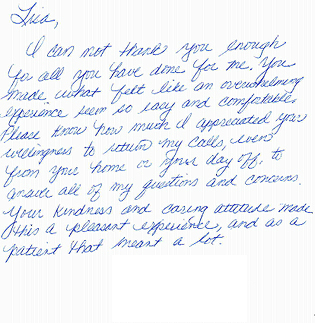 Lisa,
I can not thank you enough
for all you have done for me. You
made what felt like an overwhelming
experience seem so easy and comfortable.
Please know how much I appreciated your
willingness to return my calls, even
from your home or your day off, to
answer all of my questions and concerns.
Your kindness and caring attitude made
this a pleasant experience, and as a
patient that meant a lot.